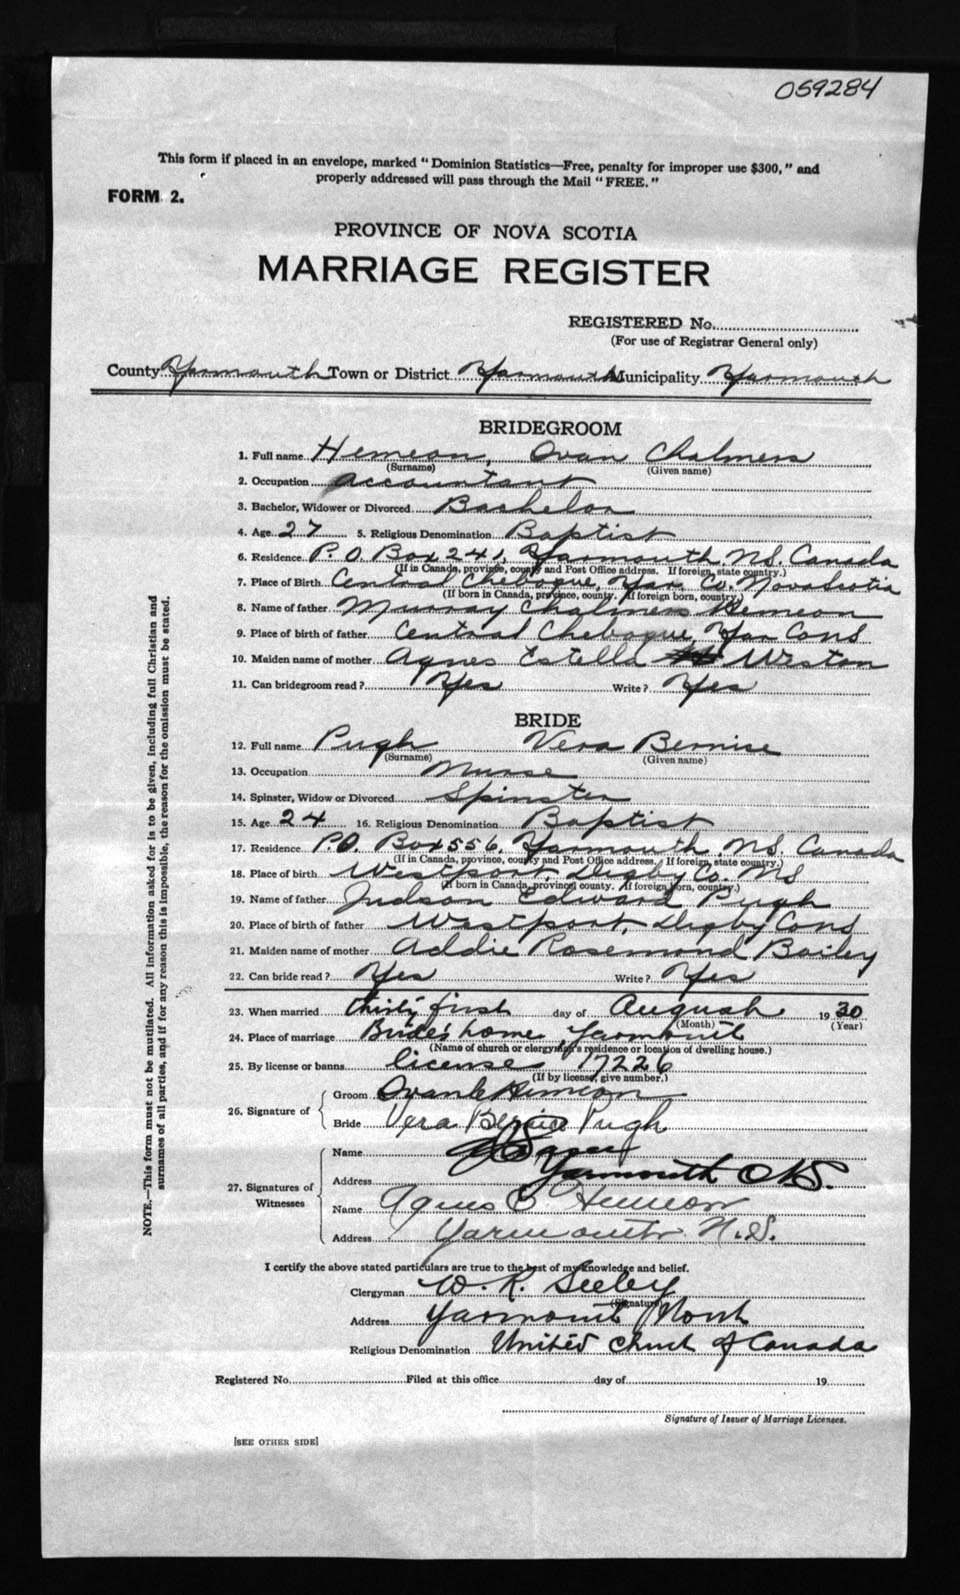 059284
This form if placed in an envelope, marked "Dominion Statistics—Free, penalty for improper use $300," and
properly addressed will pass through the Mail "FREE."
FORM 2.
PROVINCE OF NOVA SCOTIA
MARRIAGE REGISTER
REGISTERED No.
(For use of Registrar General only)
County Yarmouth Town or District Yarmouth Municipality Yarmouth
BRIDEGROOM
1. Full name Hemeon, Ovan Chalmers
(Surname) (Given name)
2. Occupation accountant
3. Bachelor, Widower or Divorced Bachelor
4. Age 27 5. Religious Denomination Baptist
6. Residence P.O. Box 241, Yarmouth, N.S. Canada
(If in Canada, province, county and Post Office address. If foreign, state country.)
7. Place of Birth Central Chebogue, Yar. Co. Nova Scotia
(If born in Canada, province, county. If foreign born, country.)
8. Name of father Murray Chalmers Hemeon
9. Place of birth of father Central Chebogue, Yar Co NS
10. Maiden name of mother Agnes Estella Weston
11. Can bridegroom read? Yes Write? Yes
BRIDE
12. Full name Pugh Vera Bernice
(Surname) (Given name)
13. Occupation Nurse
14. Spinster, Widow or Divorced Spinster
15. Age 24 16. Religious Denomination Baptist
17. Residence P.O. Box 556, Yarmouth, N.S. Canada
(If in Canada, province, county and Post Office address. If foreign, state country.)
18. Place of birth Westport, Digby Co. NS
(If born in Canada, province, county. If foreign born, country.)
19. Name of father Judson Edward Pugh
20. Place of birth of father Westport, Digby Co NS
21. Maiden name of mother Addie Rosemond Bailey
22. Can bride read? Yes Write? Yes
23. When married thirty first day of August 1930
(Month) (Year)
24. Place of marriage Bride's home, Yarmouth
(Name of church or clergyman's residence or location of dwelling house.)
25. By license or banns license 17226
(If by license, give number.)
26. Signature of Groom Ovan C Hemeon
Bride Vera Bernice Pugh
27. Signatures of Witnesses Name
Address Yarmouth N.S.
Name Agnes E Hemeon
Address Yarmouth N.S.
I certify the above stated particulars are true to the best of my knowledge and belief.
Clergyman W. R. Seeley
(Signature)
Address Yarmouth North
Religious Denomination United Church of Canada
Registered No. Filed at this office day of 19
Signature of Issuer of Marriage Licenses.
[SEE OTHER SIDE]
NOTE.—This form must not be mutilated. All information asked for is to be given, including full Christian and
surnames of all parties, and if for any reason this is impossible, the reason for the omission must be stated.